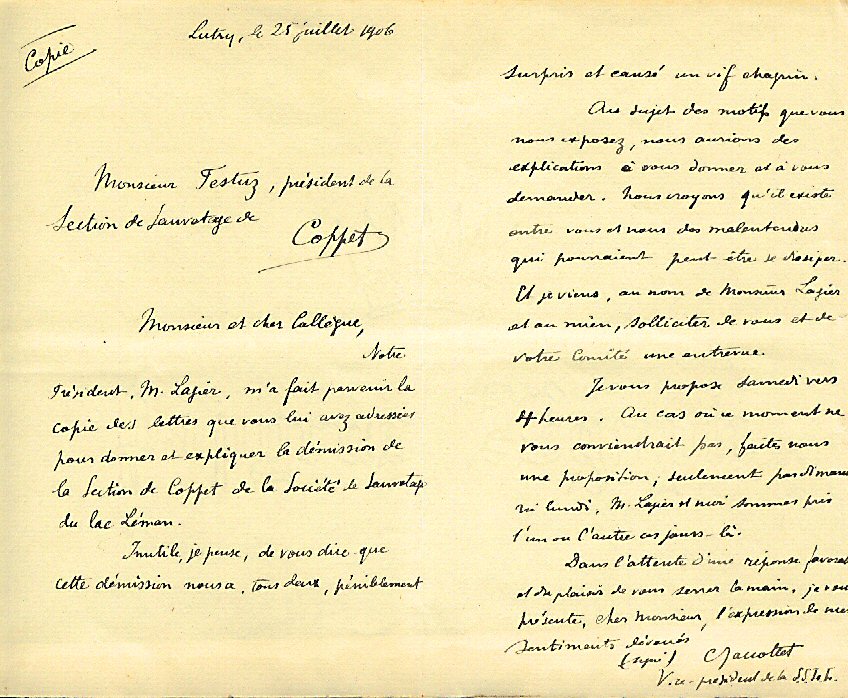 Copie
Lutry, le 25 juillet 1906
Monsieur Testuz, président de la
Section de Sauvetage de
Coppet
Monsieur et cher Collègue,
Notre
Président, M. Lagier, m'a fait parvenir la
copie des lettres que vous lui avez adressées
pour donner et expliquer la démission de
la Section de Coppet de la Société de Sauvetage
du lac Léman.
Inutile, je pense, de vous dire que
cette démission nous a, tous deux, péniblement
surpris et causé un vif chagrin.
Au sujet des motifs que vous
nous exposez, nous aurions des
explications à vous donner et à vous
demander. Nous croyons qu'il existe
entre vous et nous des malentendus
qui pourraient peut être se dissiper.
Et je viens, au nom de Monsieur Lagier
et au mien, solliciter de vous et de
votre Comité une entrevue.
Je vous propose Samedi vers
4 heures. Au cas où ce moment ne
vous conviendrait pas, faites nous
une proposition; seulement pas dimanche
ni lundi, M. Lagier et moi sommes pris
l'un ou l'autre ces jours-là.
Dans l'attente d'une réponse favorable
et du plaisir de vous serrer la main, je vous
présente, cher Monsieur, l'expression de mes
Sentiments dévoués
(signé)
Vice-président de la